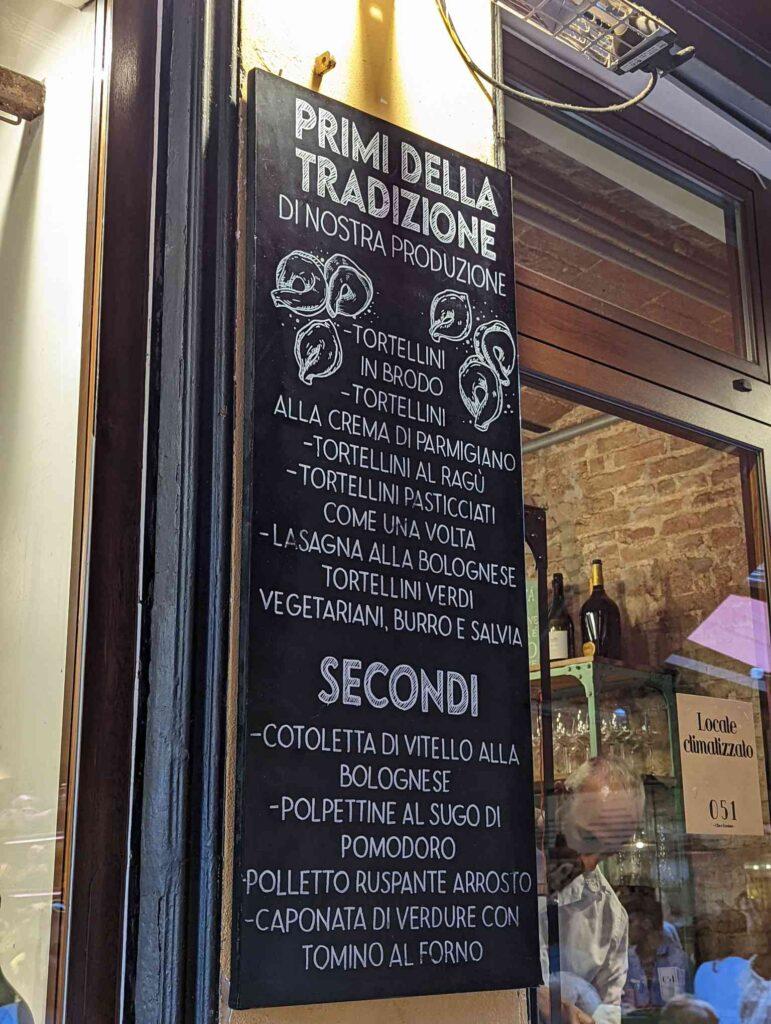 PRIMI DELLA
TRADIZIONE
DI NOSTRA PRODUZIONE
-TORTELLINI
IN BRODO
-TORTELLINI
ALLA CREMA DI PARMIGIANO
-TORTELLINI AL RAGÙ
-TORTELLINI PASTICCIATI
COME UNA VOLTA
-LASAGNA ALLA BOLOGNESE
TORTELLINI VERDI
VEGETARIANI, BURRO E SALVIA
SECONDI
-COTOLETTA DI VITELLO ALLA
BOLOGNESE
-POLPETTINE AL SUGO DI
POMODORO
-POLLETTO RUSPANTE ARROSTO
-CAPONATA DI VERDURE CON
TOMINO AL FORNO
Locale
climatizzato
051